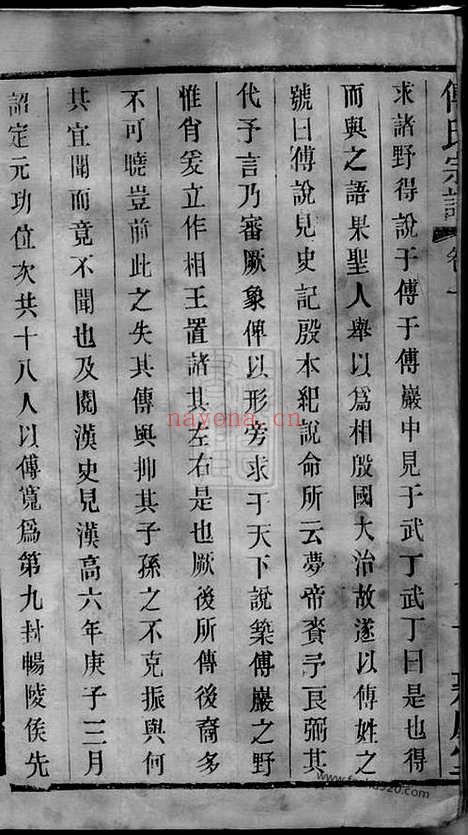 傅氏宗譜 卷一
求諸野得說于傅于傅巖中見于武丁武丁曰是也得
而與之語果聖人舉以爲相殷國大治故遂以傅姓之
號曰傅說見史記殷本紀說命所云夢帝賚予良弼其
代予言乃審厥象俾以形旁求于天下說築傅巖之野
惟肖爰立作相王置諸其左右是也厥後所傳後裔多
不可曉豈前此之失其傳與抑其子孫之不克振與何
其宜聞而竟不聞也及閱漢史見漢高六年庚子三月
詔定元功位次共十八人以傅寬爲第九封暢陵侯先
nayona.cn